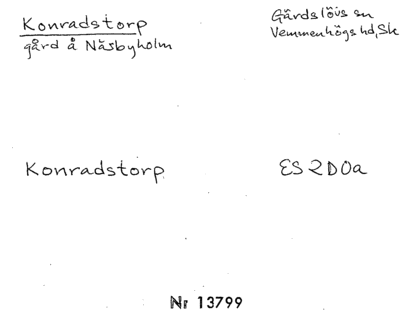 Konradstorp
gård å Näsbyholm
Gärdslövs sn
Vemmenhögs hd, Sk
Konradstorp
ES 2D0a
Nr 13799